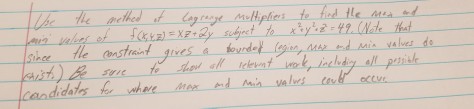 Use the method of Lagrange multipliers to find the max and
min values of f(x,y,z)=xz+2y subject to x²+y²+z²=49. (Note that
since the constraint gives a bounded region, max and min values do
exist.) Be sure to show all relevant work, including all possible
candidates for where max and min values could occur.